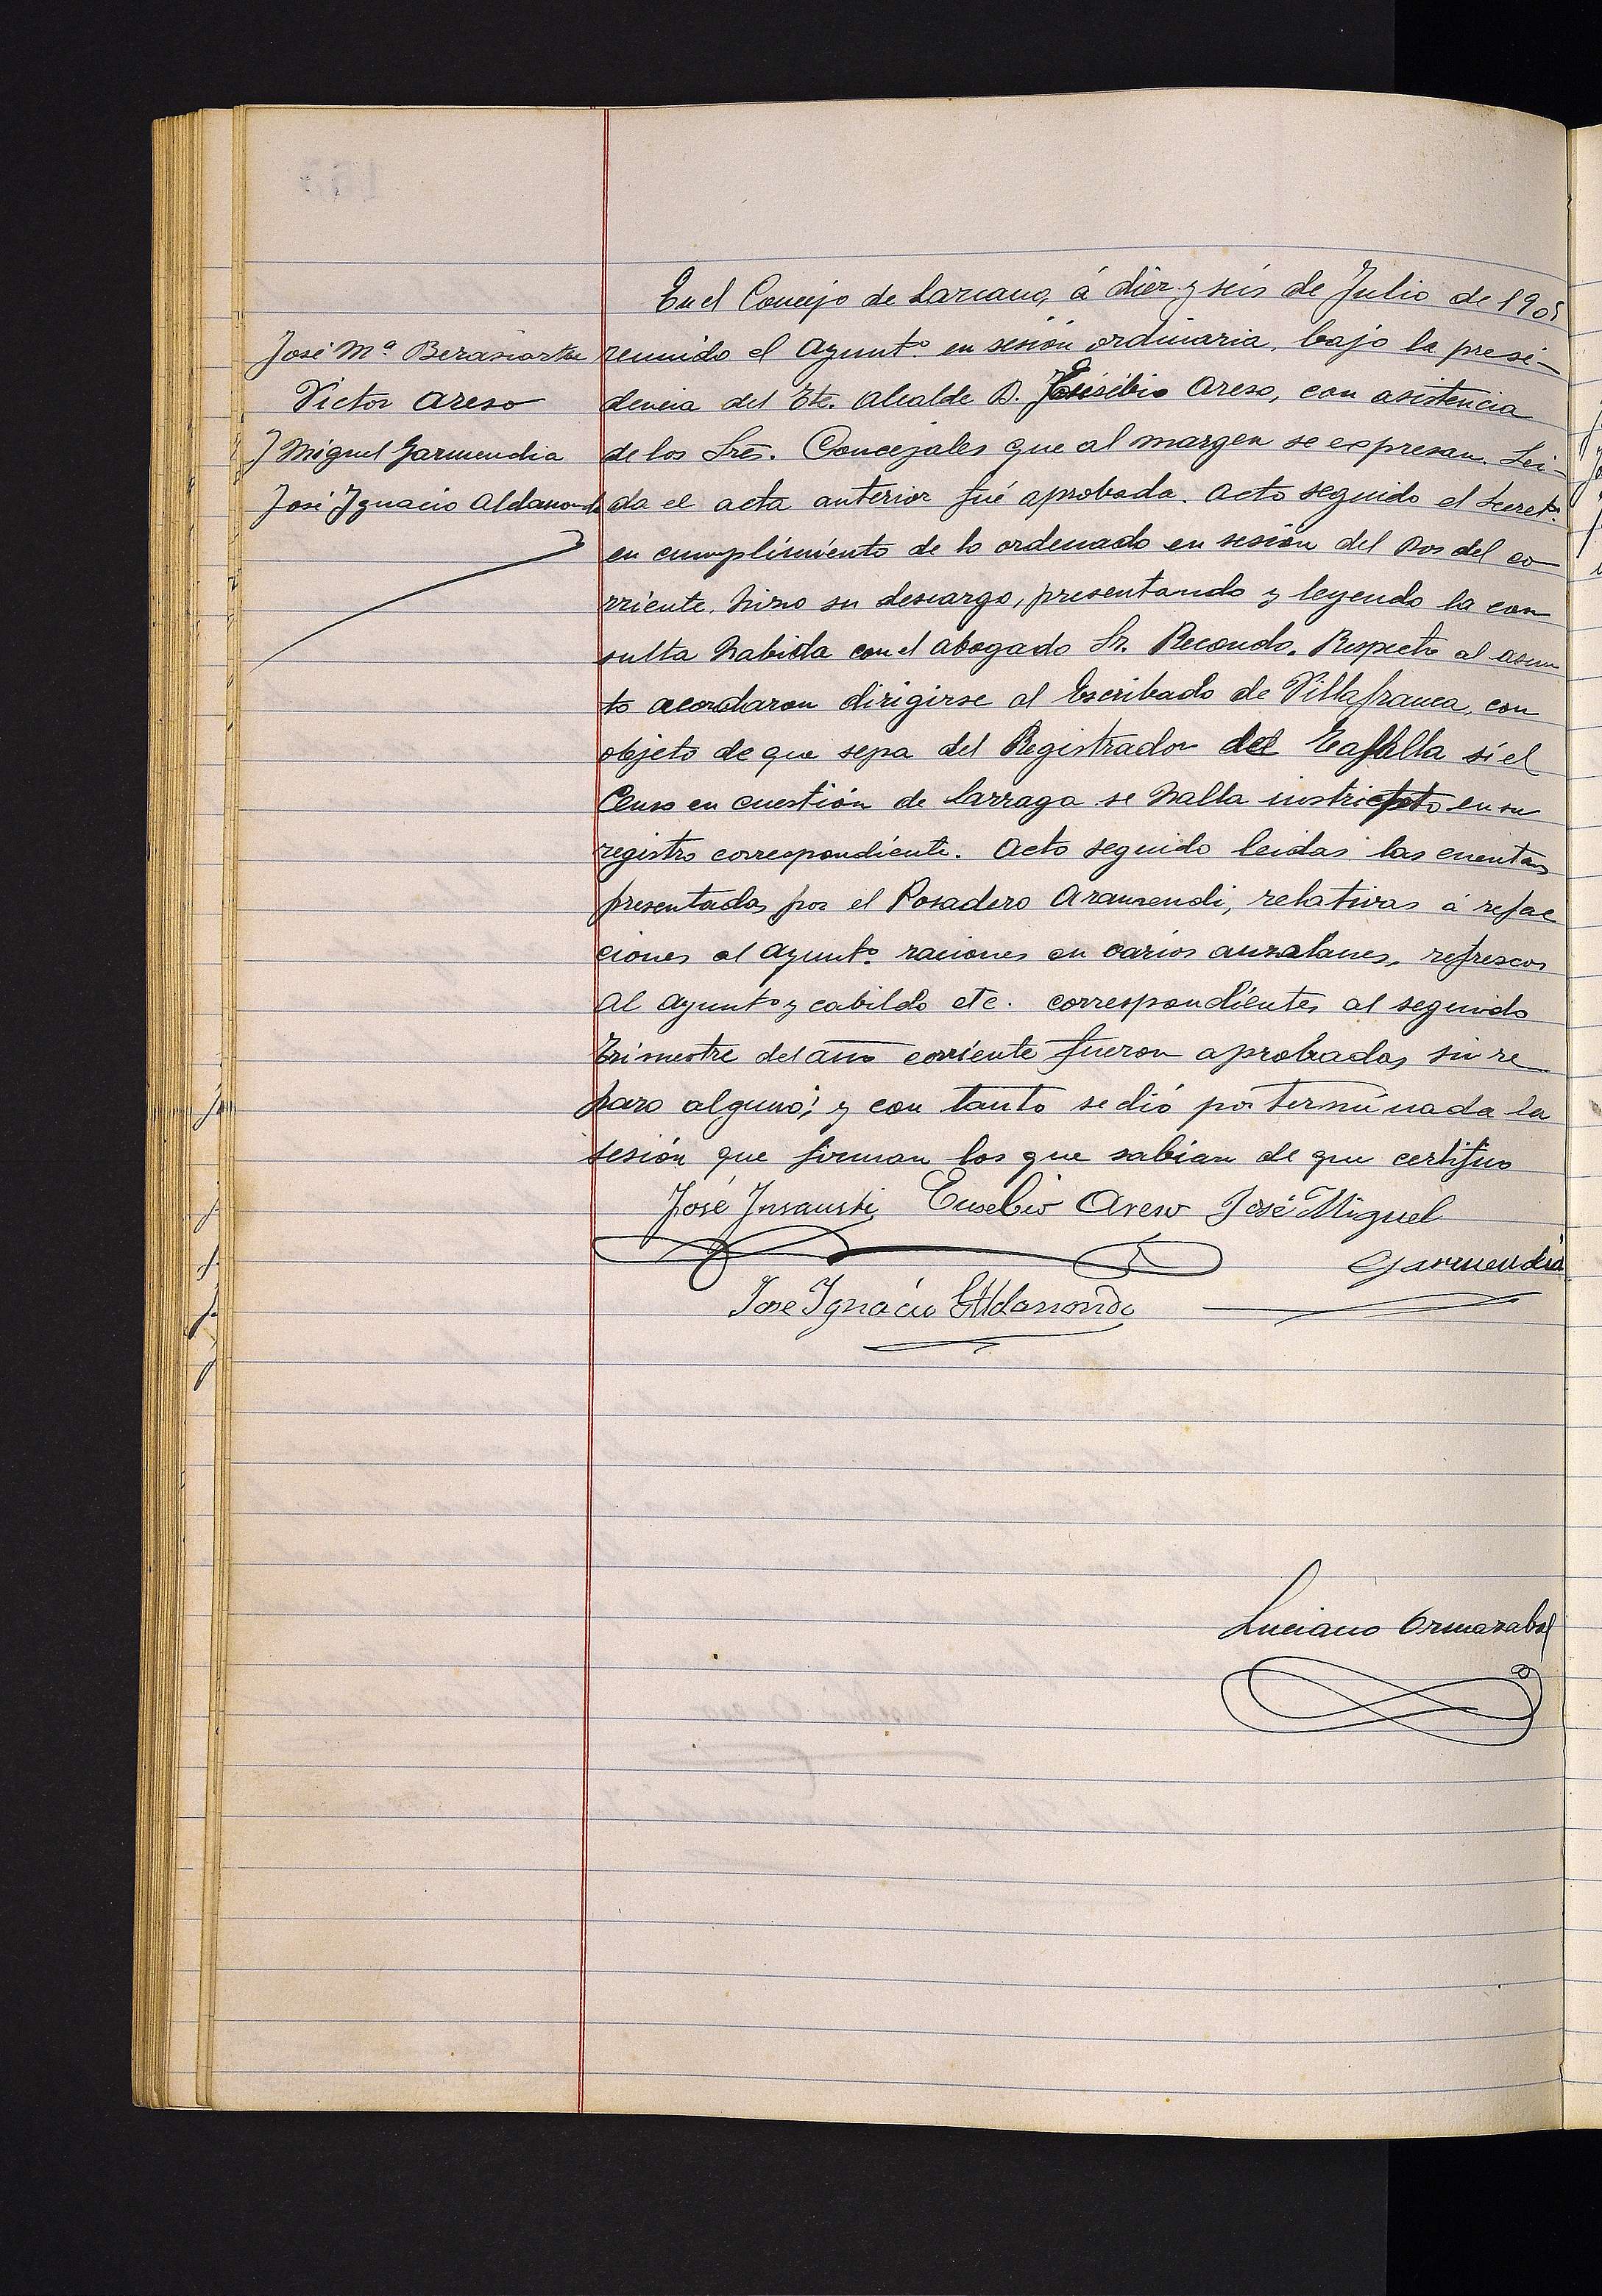 En el Concejo de Lazcano, á diez y seis de Julio de 1905
reunido el Ayunt.º en sesión ordinaria, bajo la presi-
dencia del Tte. Alcalde D. Eusebio Areso, con asistencia
de los Sres. Concejales que al margen se expresan. Lei-
da el acta anterior fué aprobada. Acto seguido el Secret.º
en cumplimiento de lo ordenado en sesión del Dos del co
rriente, hizo su descargo, presentando y leyendo la con
sulta habida con el abogado Sr. Recondo. Respecto al asun
to acordaron dirigirse al Escribado de Villafranca, con
objeto de que sepa del Registrador del Tafalla si el
Censo en cuestión de Larraga se halla en su
registro correspondiente. Acto seguido leidas las cuentas
presentadas por el Posadero Aramendi, relativas á refac
ciones al Ayunt.º raciones en varios auzalanes, refrescos
al Ayunt.º y cabildo etc. correspondientes al segundo
Trimestre del año corriente fueron aprobadas sin re
paro alguno; y con tanto se dió por terminada la
sesión que firman los que sabian de que certifico
José Mª Berasiartu
Victor Areso
J Miguel Garmendia
José Ignacio Aldasoro
José Insausti Eusebio Areso José Miguel
Garmendia
Jose Ignacio Aldasoro
Luciano Ormazabal